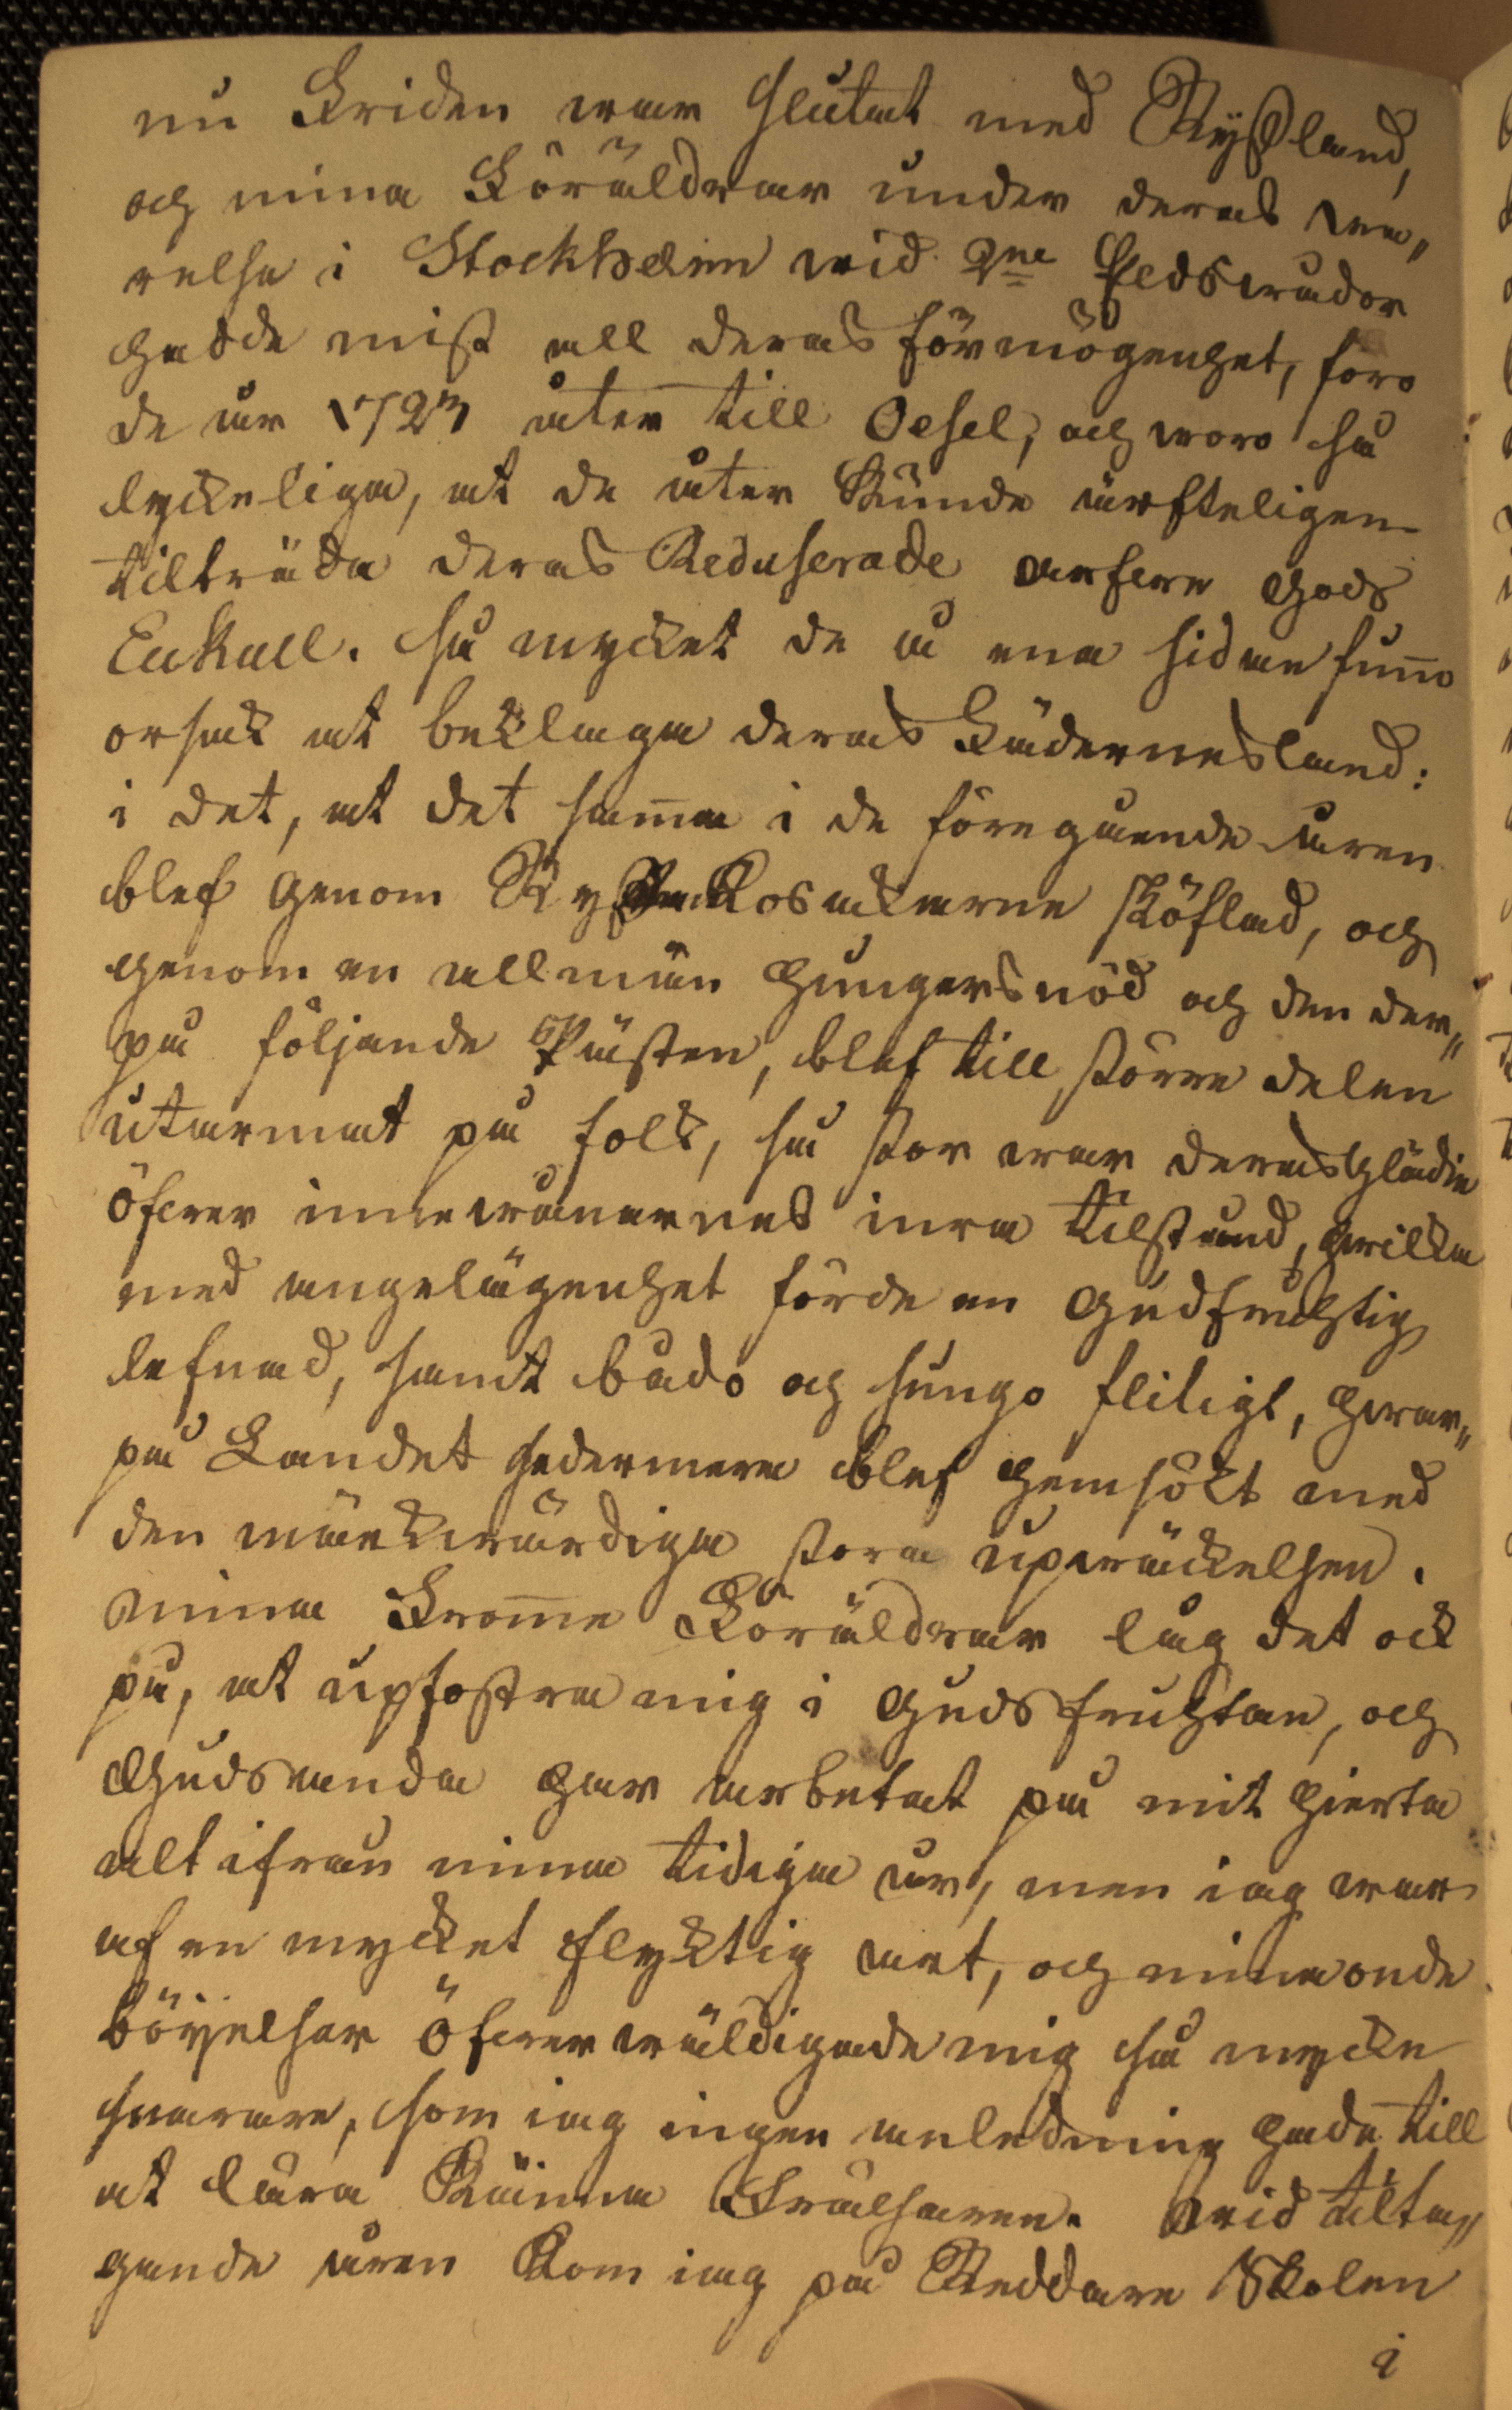 nu Friden war slutat med Ryßland,
och mina Föräldrar under deras wa„
relse i Stockholm wid 2ne Eldswådor
hadde mist all deras förmögenhet, foro
de år 1723 åter till Oesel, och woro så
lyckeliga, at de åter kunde ärfteligen
tilträda deras Reduserade arfwe gods
Enkull. Så mycket de å ena sidan funno
orsak at beklaga deras Fädernesland:
i det, at det samma i de föregående åren
blef genom Ryska Cosackerne sköflad, och
genom en allmän hungersnöd och den der„
på följande Pästen, blef till större delen
utarmat på folk, så stor war deras glädie
öfwer innewånarnes inra tilstånd, hwilka
med angelägenhet förde en gudfrugtig
lefnad, samt bådo och sungo fliligt, hwar„
på Landet sedermera blef hemsökt med
den märkwärdiga stora upwäckelsen.
Mina Fromme Föräldrar låg det ock
på, at upfostra mig i Guds fruchtan, och
Guds anda har arbetat på mit hierta
alt ifrån mina tidiga år, men iag war
af en mycket flycktig art, och mina onde
böyelser öfwerwäldigade mig så mycke
snarare, som iag ingen anledning hade till
at lära känna Frälsaren. Wid tilta„
gande åren kom iag på Riddare Skolan
i